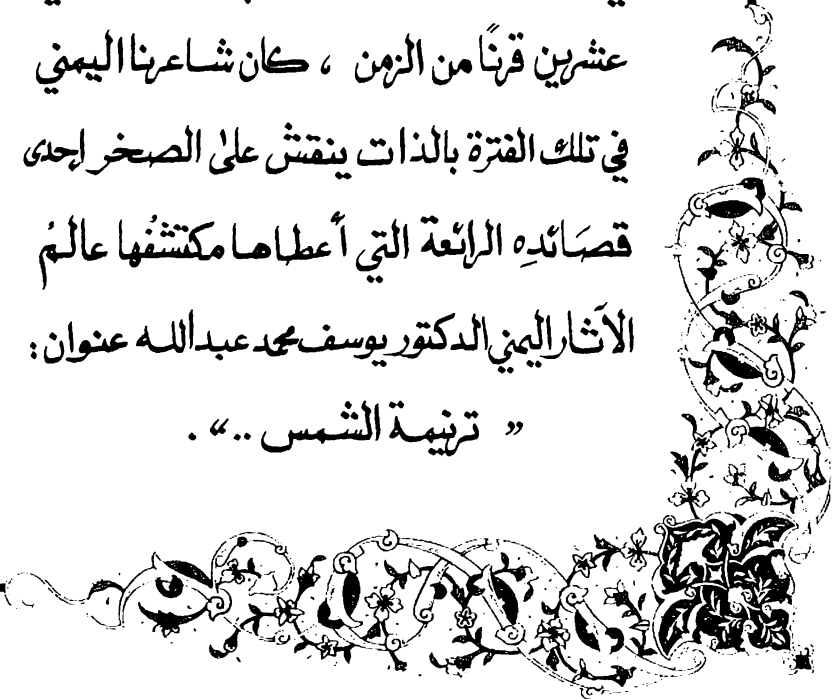 عشرين قرنًا من الزمن ، كان شاعرنا اليمني
في تلك الفترة بالذات ينقش على الصخر إحدى
قصَائدِه الرائعة التي أعطاها مكتشفُها عالمُ
الآثار اليمني الدكتور يوسف محمد عبدالله عنوان :
” ترنيمة الشمس .. “ .